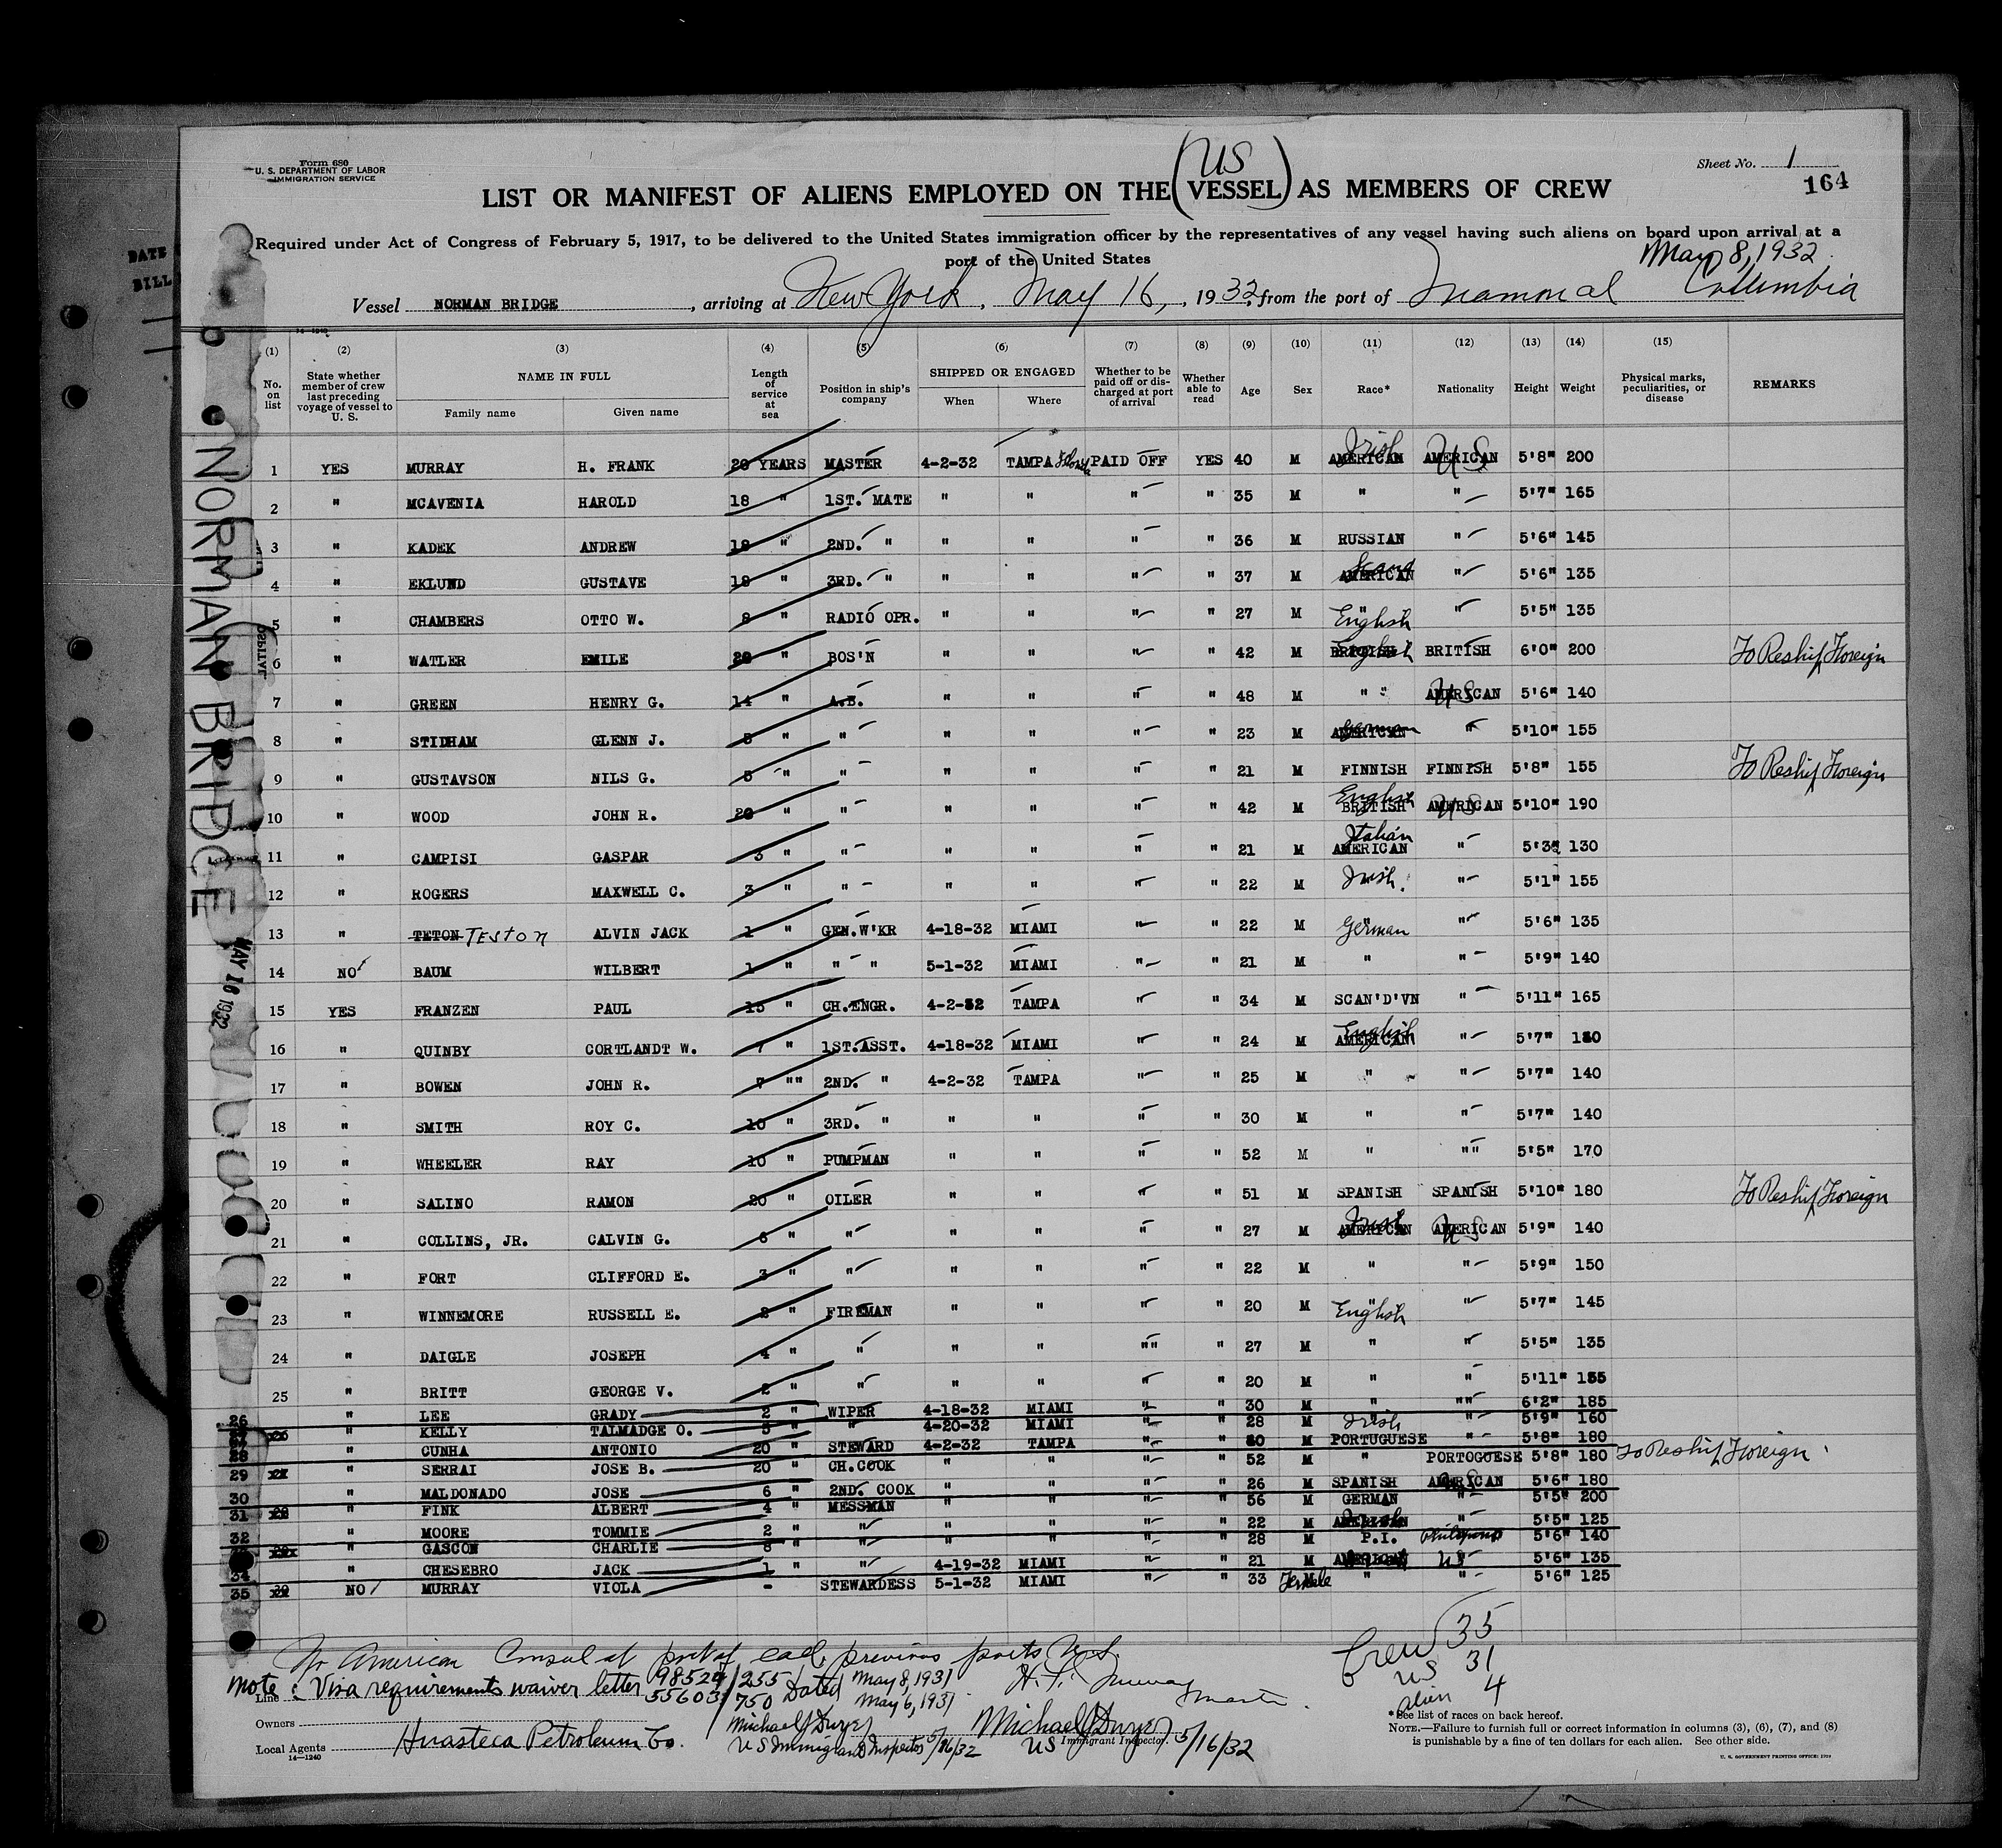 Form 680
U. S. DEPARTMENT OF LABOR
IMMIGRATION SERVICE
Sheet No. 1
164
US
LIST OR MANIFEST OF ALIENS EMPLOYED ON THE (VESSEL) AS MEMBERS OF CREW
Required under Act of Congress of February 5, 1917, to be delivered to the United States immigration officer by the representatives of any vessel having such aliens on board upon arrival at a
port of the United States
May 8, 1932
Vessel NORMAN BRIDGE, arriving at New York, May 16, 1932, from the port of Mamonal Columbia
DATE
BILL
NORMAN BRIDGE
MAY 16 1932
(1) (2) (3) (4) (5) (6) (7) (8) (9) (10) (11) (12) (13) (14) (15)
No. on list
State whether member of crew last preceding voyage of vessel to U. S.
NAME IN FULL
Family name
Given name
Length of service at sea
Position in ship's company
SHIPPED OR ENGAGED
When
Where
Whether to be paid off or discharged at port of arrival
Whether able to read
Age
Sex
Race*
Nationality
Height
Weight
Physical marks, peculiarities, or disease
REMARKS
1 YES MURRAY H. FRANK 20 YEARS MASTER 4-2-32 TAMPA Florida PAID OFF YES 40 M AMERICAN Irish AMERICAN US 5'8" 200
2 " MCAVENIA HAROLD 18 " 1ST. MATE " " " " 35 M " " 5'7" 165
3 " KADEK ANDREW 18 " 2ND. " " " " " 36 M RUSSIAN " 5'6" 145
4 " EKLUND GUSTAVE 18 " 3RD. " " " " " 37 M AMERICAN Scand " 5'6" 135
5 " CHAMBERS OTTO W. 8 " RADIO OPR. " " " " 27 M " English " 5'5" 135
6 " WATLER EMILE 20 " BOS'N " " " " 42 M BRITISH English BRITISH 6'0" 200 To Reship Foreign
7 " GREEN HENRY G. 14 " A.B. " " " " 48 M " " AMERICAN US 5'6" 140
8 " STIDHAM GLENN J. 5 " " " " " " 23 M AMERICAN German " 5'10" 155
9 " GUSTAVSON NILS G. 5 " " " " " " 21 M FINNISH FINNISH 5'8" 155 To Reship Foreign
10 " WOOD JOHN R. 20 " " " " " " 42 M BRITISH English AMERICAN US 5'10" 190
11 " CAMPISI GASPAR 3 " " " " " " 21 M AMERICAN Italian " 5'3" 130
12 " ROGERS MAXWELL C. 3 " " " " " " 22 M " Irish " 5'1" 155
13 " TETON TESTON ALVIN JACK 1 " GEN.W'KR 4-18-32 MIAMI " " 22 M " German " 5'6" 135
14 NO BAUM WILBERT 1 " " " 5-1-32 MIAMI " " 21 M " " 5'9" 140
15 YES FRANZEN PAUL 15 " CH.ENGR. 4-2-32 TAMPA " " 34 M SCAN'D'VN " 5'11" 165
16 " QUINBY CORTLANDT W. 7 " 1ST.ASST. 4-18-32 MIAMI " " 24 M AMERICAN English " 5'7" 180
17 " BOWEN JOHN R. 7 "" 2ND. " 4-2-32 TAMPA " " 25 M " " 5'7" 140
18 " SMITH ROY C. 10 " 3RD. " " " " " 30 M " " 5'7" 140
19 " WHEELER RAY 10 " PUMPMAN " " " " 52 M " "" 5'5" 170
20 " SALINO RAMON 20 " OILER " " " " 51 M SPANISH SPANISH 5'10" 180 To Reship Foreign
21 " COLLINS, JR. CALVIN G. 6 " " " " " " 27 M AMERICAN Irish AMERICAN US 5'9" 140
22 " FORT CLIFFORD E. 3 " " " " " " 22 M " " 5'9" 150
23 " WINNEMORE RUSSELL E. 2 " FIREMAN " " " " 20 M " English " 5'7" 145
24 " DAIGLE JOSEPH 4 " " " " "" " 27 M " " 5'5" 135
25 " BRITT GEORGE V. 2 " " " " " " 20 M " " 5'11" 155
26 " LEE GRADY 2 " WIPER 4-18-32 MIAMI " " 30 M " "" 6'2" 185
27 " KELLY TALMADGE O. 5 " " 4-20-32 MIAMI " " 28 M " Irish " 5'9" 160
28 " CUNHA ANTONIO 20 " STEWARD 4-2-32 TAMPA " " 30 M PORTUGUESE " 5'8" 180
29 " SERRAI JOSE B. 20 " CH.COOK " " " " 52 M " PORTOGUESE 5'8" 180 To Reship Foreign
30 " MALDONADO JOSE 6 " 2ND. COOK " " " " 26 M SPANISH AMERICAN US 5'6" 180
31 " FINK ALBERT 4 " MESSMAN " " " " 56 M GERMAN " 5'5" 200
32 " MOORE TOMMIE 2 " " " " " " 22 M AMERICAN " 5'5" 125
" GASCON CHARLIE 8 " " " " " " 28 M P.I. 5'6" 140
34 " CHESEBRO JACK 1 " " 4-19-32 MIAMI " " 21 M AMERICAN US 5'6" 135
35 NO MURRAY VIOLA - STEWARDESS 5-1-32 MIAMI " " 33 Female " " 5'6" 125
No American Consul at port of call, previous ports U.S.
Crew 35
US 31
alien 4
Note: Visa requirements waiver letter 98524/255 Dated May 8, 1931
55603/750 May 6, 1931
H. F. Murray Master
Line
Owners
Local Agents Huasteca Petroleum Co.
14—1240
Michael J Dwyer
US Immigrant Inspector 5/16/32
Michael J Dwyer
US Immigrant Inspector. 5/16/32
*See list of races on back hereof.
NOTE.—Failure to furnish full or correct information in columns (3), (6), (7), and (8)
is punishable by a fine of ten dollars for each alien. See other side.
U. S. GOVERNMENT PRINTING OFFICE: